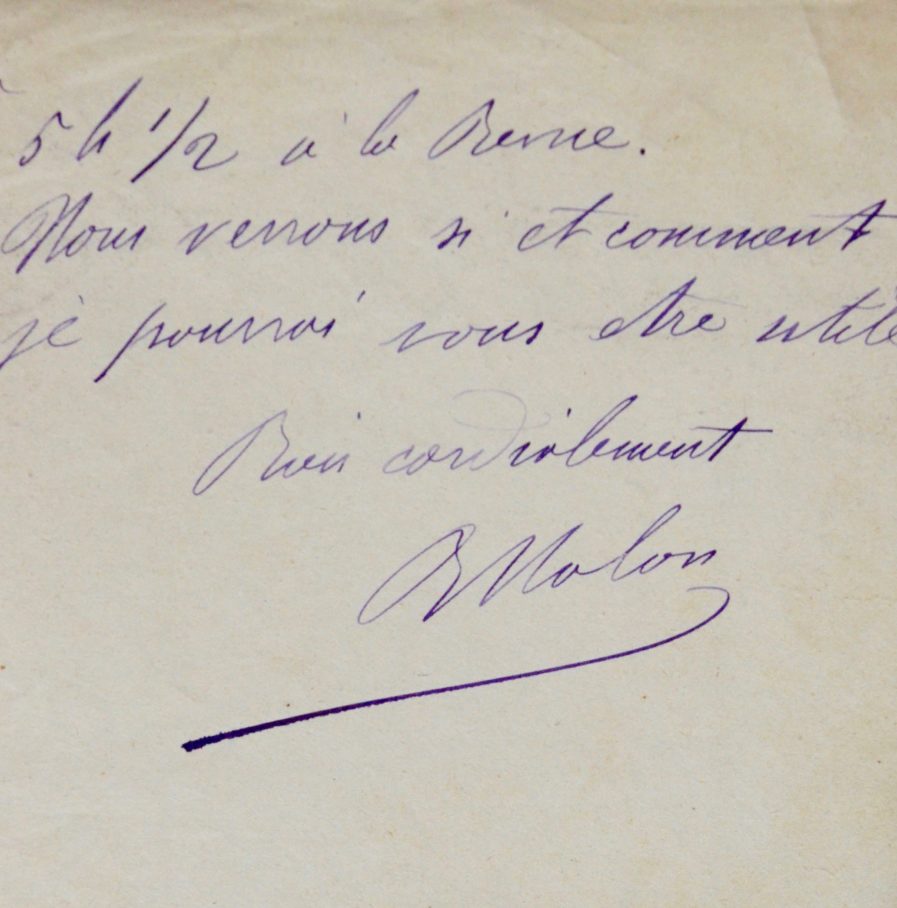 5 h 1/2 à la Revue.
Nous verrons si et comment
je pourrai vous etre utile
Bien cordialement
B Malon